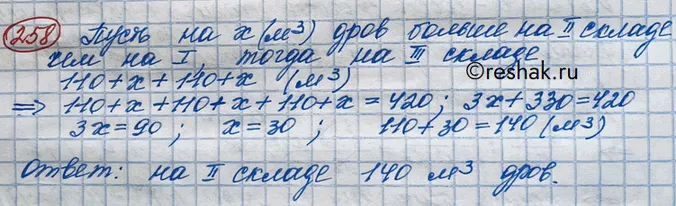 258 Пусть на x (м³) дров больше на II складе
чем на I, тогда на III складе
110+x+110+x (м³)
©reshak.ru
⇒ 110+x+110+x+110+x=420; 3x+330=420
3x=90; x=30; 110+30=140 (м³)
Ответ: на II складе 140 м³ дров.